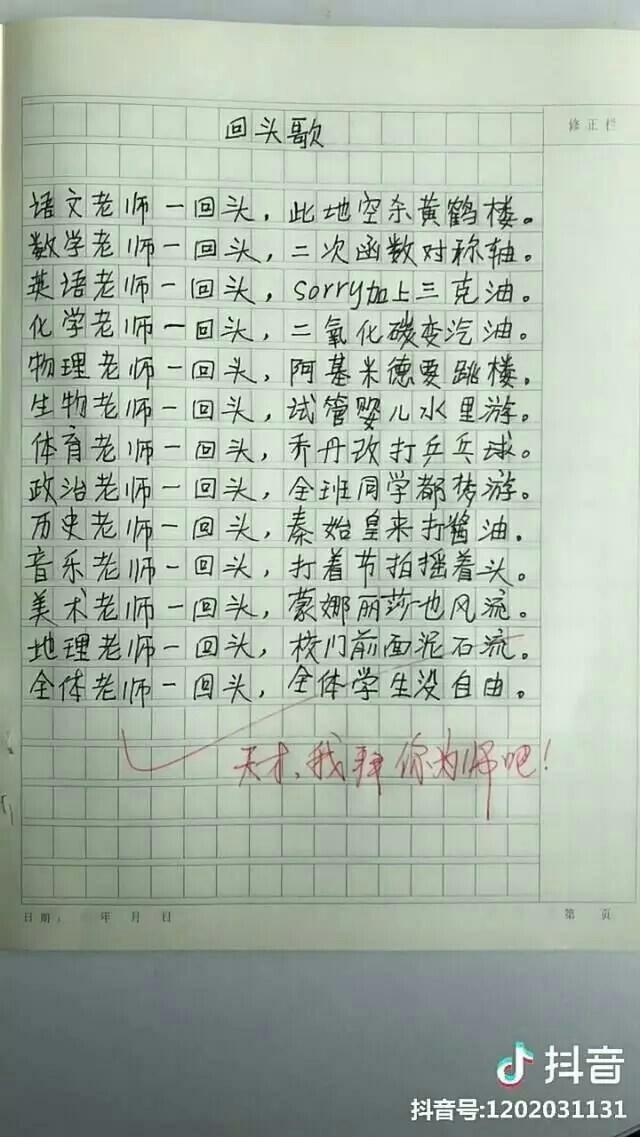 回头歌
修正栏
语文老师一回头，此地空余黄鹤楼。
数学老师一回头，二次函数对称轴。
英语老师一回头，sorry加上三克油。
化学老师一回头，二氧化碳变汽油。
物理老师一回头，阿基米德要跳楼。
生物老师一回头，试管婴儿水里游。
体育老师一回头，乔丹改打乒乓球。
政治老师一回头，全班同学都梦游。
历史老师一回头，秦始皇来打酱油。
音乐老师一回头，打着节拍摇着头。
美术老师一回头，蒙娜丽莎也风流。
地理老师一回头，校门前面泥石流。
全体老师一回头，全体学生没自由。
天才，我拜你为师吧！
日期： 年 月 日
第 页
抖音
抖音号:1202031131